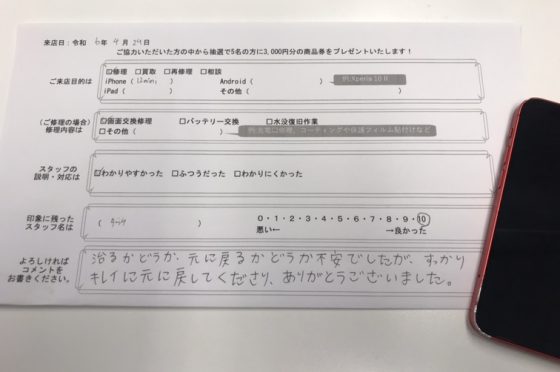 来店日：令和 6年 4月 29日
ご協力いただいた方の中から抽選で5名の方に3,000円分の商品券をプレゼントいたします！
ご来店目的は
☑修理 □買取 □再修理 □相談
iPhone ( 12mini ) Android ( ) 例:Xperia 10 II
iPad ( ) その他 ( )
(ご修理の場合)
修理内容は
☑画面交換修理 □バッテリー交換 □水没復旧作業
□その他 ( ) 例:充電口修理、コーティングや保護フィルム貼付けなど
スタッフの
説明・対応は
☑わかりやすかった □ふつうだった □わかりにくかった
印象に残った
スタッフ名は
( )
0・1・2・3・4・5・6・7・8・9・10
悪い← →良かった
よろしければ
コメントを
お書きください。
治るかどうか、元に戻るかどうか不安でしたが、すっかり
キレイに元に戻してくださり、ありがとうございました。